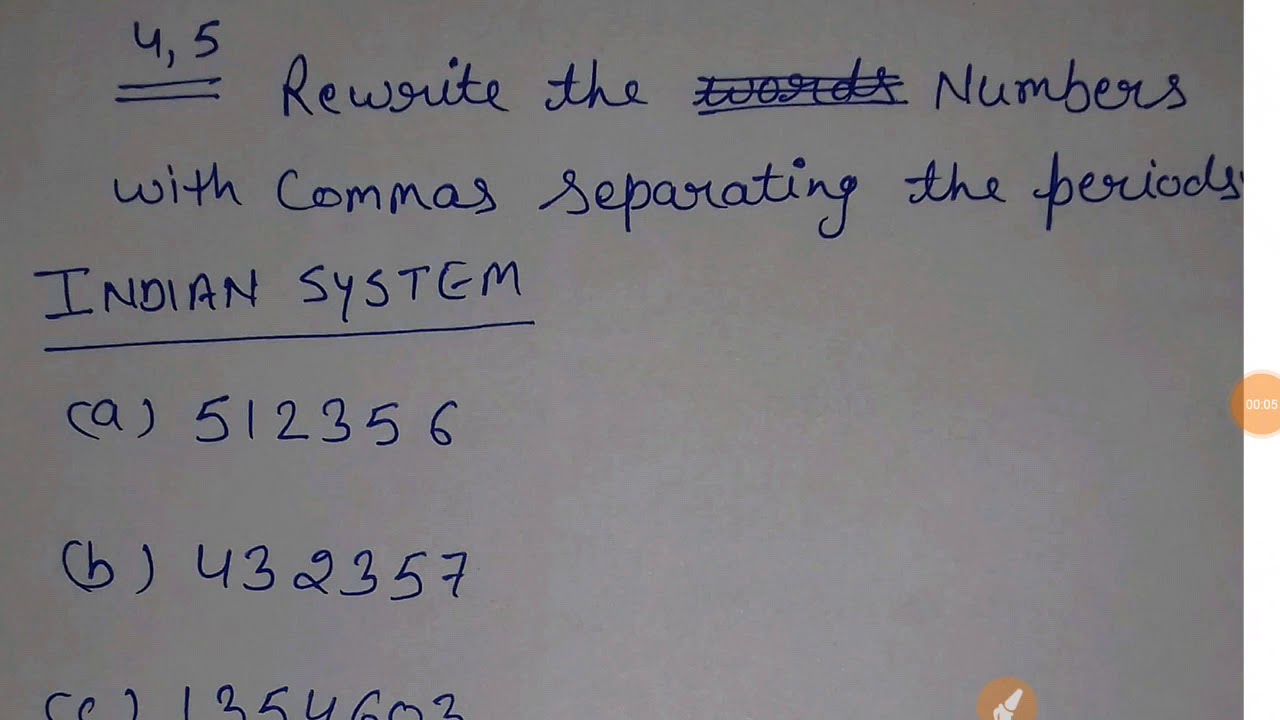 4,5 Rewrite the words Numbers
with Commas separating the periods
INDIAN SYSTEM
(a) 512356
(b) 432357
(c) 1354603
00:05